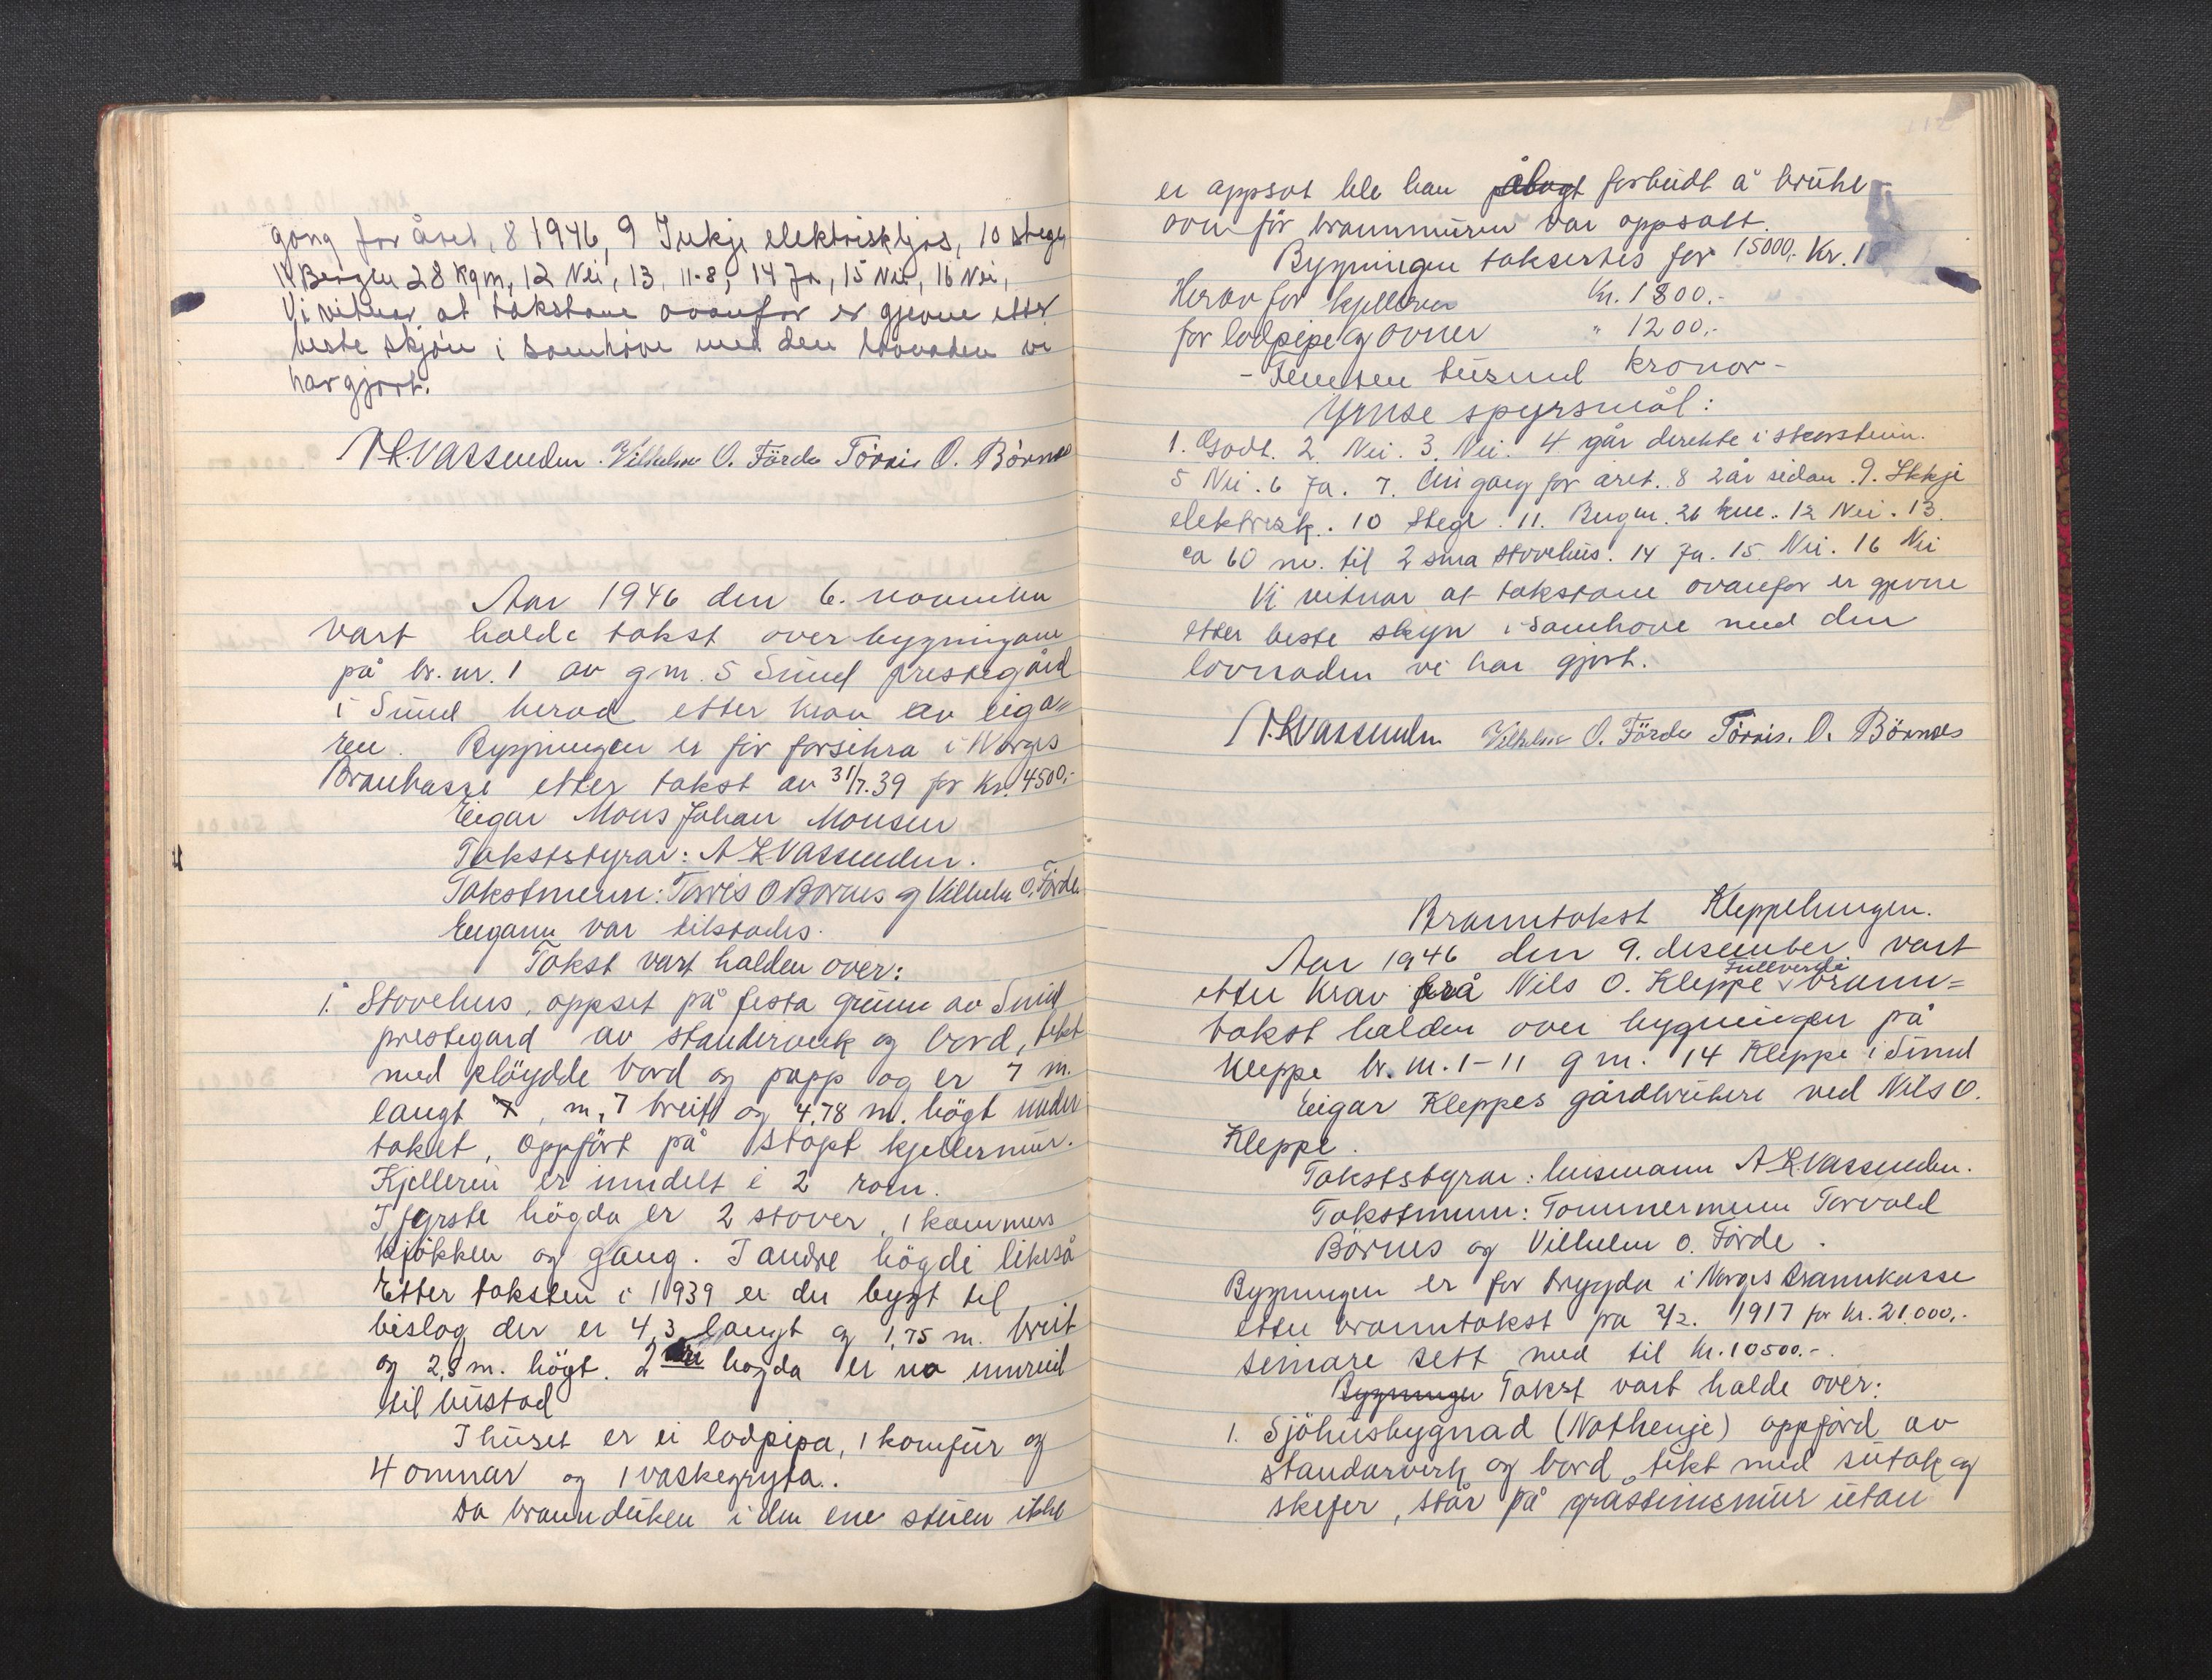 gong for året, 8 1946, 9 Inkje elektriskljos, 10 stege
11 Bergen 28 Kgm, 12 Nei, 13, 11-8, 14 Ja, 15 Nei, 16 Nei,
Vi vitnar at takstane ovanfor er gjevne etter
beste skjön i samhöve med den lovnaden vi
har gjort.
A L Vassenden. Vilhelm O. Förde Törris O. Börnes
Aar 1946 den 6. november
vart halde takst over bygningane
på br. nr. 1 av g nr. 5 Sund prestegård
i Sund herad etter krav av eiga=
ren. Bygningen er för forsikra i Norges
Brankasse etter takst av 31/7.39 for Kr. 4500,-
Eigar Mons Johan Monsen
Takststyrar: A L Vassenden.
Takstmenn: Torris O Bornes og Vilhelm O. Förde
Eigaren var tilstades.
Takst vart halden over:
1. Stovehus, oppset på festa grunn av Sund
prestegard av standerverk og bord, tekt
med plöydde bord og papp og er 7 m.
langt, m, 7 breitt og 4,78 m. högt under
taket, oppfört på stöpt kjellermur.
Kjelleren er inndelt i 2 rom.
I fyrste högda er 2 stover, 1 kammers
kjökken og gang. I andre högdi likeså
Etter taksten i 1939 er der bygt til
bislag der er 4,3 langt og 1,75 m. breit
og 2,5 m. högt. 2 högda er no innreid
til bustad
I huset er ei lodpipa, 1 komfur og
4 omnar og 1 vaskegryta.
Da branndüken i den ene stuen ikke
er oppsat ble han pålagt forbudt å bruke
ovn för brannmuren var oppsatt.
Bygningen taksertes for 15000,- Kr.
Herav for kjelleren Kr. 1800.-
for lodpipe og ovner " 1200.-
- Femten tusund kronor -
Ymse spyrsmål:
1. Godt. 2. Nei. 3. Nei. 4 går direkte i skorstein.
5 Nei. 6 Ja. 7. Ein gang for året. 8 2 år sidan. 9. Ikkje
elektrisk. 10 Stege. 11. Bergen. 26 km. 12 Nei. 13.
ca 60 m. til 2 små stovehus. 14 Ja. 15 Nei. 16 Nei
Vi vitnar at takstane ovanfor er gjevne
etter beste skyn i samhove med den
lovnaden vi har gjort.
A L Vassenden Vilhelm O. Förde Törris. O. Börnes
Branntakst Kleppelungen.
Aar 1946 den 9. desember vart
Fullverdi
etter krav frå Nils O. Kleppe v brann=
takst halden over bygningen på
Kleppe br. nr. 1-11 g nr. 14 Kleppe i Sund
Eigar Kleppes gårdbrukere ved Nils O.
Kleppe.
Takststyrar: lensmann A L Vassenden.
Takstmenn: Tommermenn Torvald
Börnes og Vilhelm O. Förde.
Bygningen er for trygda i Norges Brannkasse
etter branntakst fra 2/2. 1917 for kr. 21.000,-
seinare sett ned til kr. 10500.-.
Bygningen Takst vart halde over:
1. Sjöhusbygnad (Nothenje) oppförd av
standarverk og bord, tekt med sutak og
skifer, står på gråsteinsmur utan